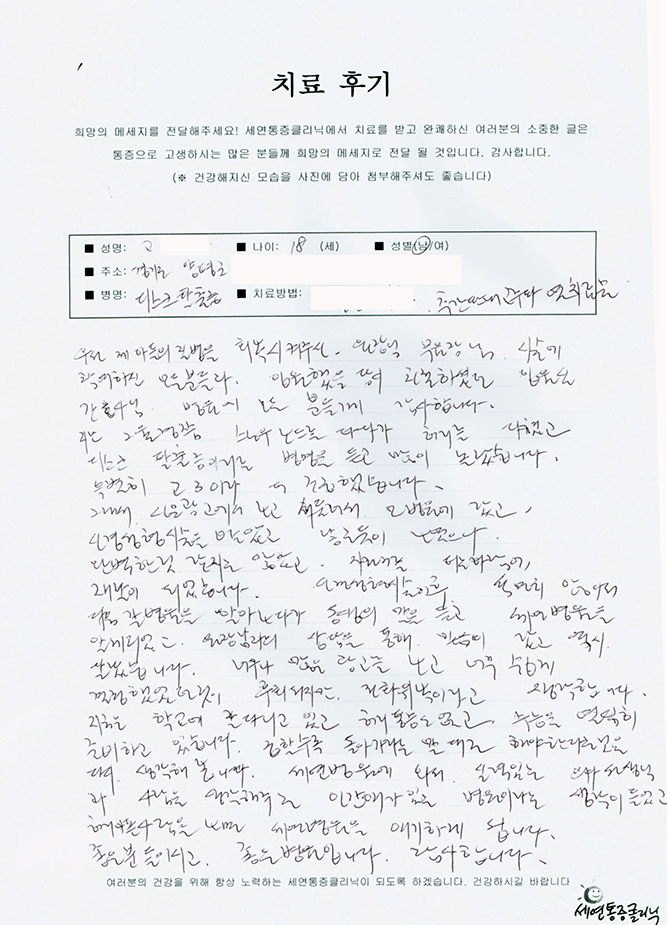 치료 후기
희망의 메세지를 전달해주세요! 세연통증클리닉에서 치료를 받고 완쾌하신 여러분의 소중한 글은
통증으로 고생하시는 많은 분들께 희망의 메세지로 전달 될 것입니다. 감사합니다.
(※ 건강해지신 모습을 사진에 담아 첨부해주셔도 좋습니다)
■ 성명: 고 ■ 나이: 18 (세) ■ 성별(남/여)
■ 주소: 경기도 양평군
■ 병명: 디스크탈출증 ■ 치료방법:
우선 제 아들의 질병을 회복시켜주신 원장님 부원장님, 시술에
참여하신 모든분들과 입원했을 당시 친절하셨던 입원실
간호사님 병원의 모든 분들께 감사합니다.
스노우보드를 타다가 허리를 다쳤고
디스크 탈출증이라는 병명을 듣고 많이 놀랐습니다.
특별히 고3이라 더 긴장했습니다.
그래서 신문광고에서 보고 병원에 갔고,
신경성형시술을 받았고
완벽한것 같지는 않았고
재발이 되었습니다. 신경성형시술이후
다음 갈병원을 찾아보다가 동생의 말을 듣고 세연병원을
알게되었고 원장님과의 상담을 통해 믿음이 갔고 역시
너무나 많은 광고를 보고 너무 쉽게
결정했었던것이 후회되지만 전화위복이라고 생각합니다.
지금은 학교에 잘다니고 있고 허리통증도 없고, 수능을 열심히
준비하고 있습니다. 급할수록 돌아가라는 말대로 해야한다는것을
다시 생각해 봅니다. 세연병원에 와서 실력있는 의사 선생님
과 사람을 생각해주는 인간애가 있는 병원이라는 생각이 들었고
허리아픈사람을 보면 세연병원을 얘기하게 됩니다.
좋은분들이시고 좋은병원입니다. 감사합니다.
여러분의 건강을 위해 항상 노력하는 세연통증클리닉이 되도록 하겠습니다. 건강하시길 바랍니다
세연통증클리닉